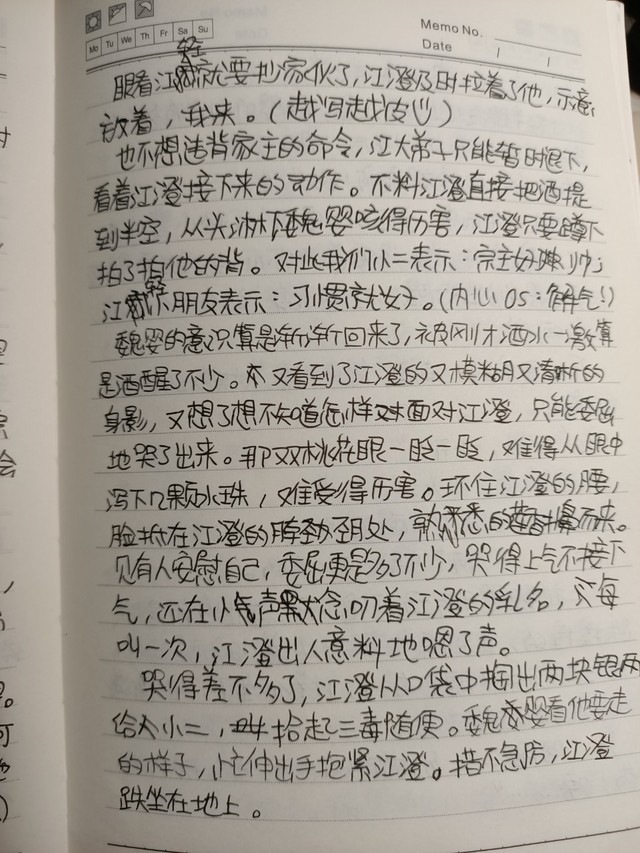 Mo Tu We Th Fr Sa Su
Memo No.
Date / /
眼看江轻就要抄家伙了,江澄及时拉着了他,示意
放着,我来。(越写越皮)
也不想违背家主的命令,江大弟子只能暂时退下,
看着江澄接下来的动作。不料江澄直接把酒提
到半空,从头淋下魏婴咳得厉害,江澄只要蹲下
拍了拍他的背。对此我们小二表示:宗主好飒,帅;
江轻小朋友表示:习惯就好。(内心OS:解气!)
魏婴的意识算是渐渐回来了,被刚才酒水一激算
是酒醒了不少。又看到了江澄的又模糊又清晰的
身影,又想了想不知道怎样面对江澄,只能委屈
地哭了出来。那双桃花眼一眨一眨,难得从眼中
泻下几颗水珠,难受得厉害。环住江澄的腰,
脸抵在江澄的脖颈处,熟悉的莲香扑鼻而来。
见有人安慰自己,委屈更是多了不少,哭得上气不接下
气,还在小声念叨着江澄的乳名,每
叫一次,江澄出人意料地嗯了声。
哭得差不多了,江澄从口袋中掏出两块银两
给小二,拾起三毒随便。魏婴看他要走
的样子,忙伸出手抱紧江澄。措不急防,江澄
跌坐在地上。
可